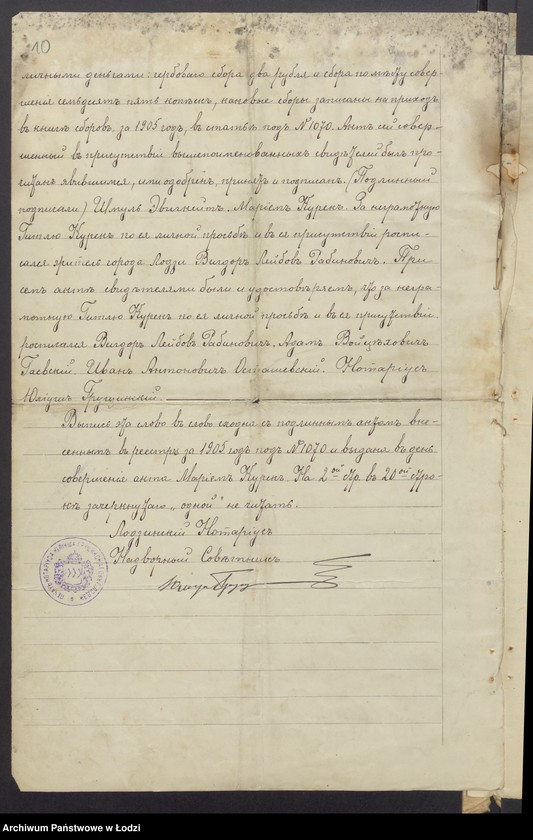 10
личными деньгами: гербоваго сбора два рубля и сбора по мѣсту совер-
шенія семьдесятъ пять копѣекъ, каковые сборы записаны на приходъ
въ книгѣ сборовъ за 1905 годъ, въ статьѣ подъ № 1070. Актъ сей совер-
шенный въ присутствіи вышепоименованныхъ свидѣтелей былъ про-
читанъ явившимся, ими одобренъ, принятъ и подписанъ. (Подлинный
подписали) Шмуль Мариемъ Курекъ. За неграмотную
Гитлю Курекъ по ея личной просьбѣ и въ ея присутствіи роспи-
сался житель города Лодзи Вигдоръ Лейбовъ Рабиновичъ. При
семъ актѣ свидѣтелями были и удостовѣряемъ, что за негра-
мотную Гитлю Курекъ по ея личной просьбѣ и въ ея присутствіи
росписался Вигдоръ Лейбовъ Рабиновичъ. Адамъ Войцѣховичъ
Гаевскій. Иванъ Антоновичъ Осташевскій. Нотаріусъ
Юліушъ Грущинскій.
Выпись эта слово въ слово сходна съ подлиннымъ актомъ вне-
сеннымъ въ реестръ за 1905 годъ подъ № 1070 и выдана въ день
совершенія акта Мариемъ Курекъ. На 2ой стр. въ 20ой стро-
кѣ зачеркнутаго „одной“ не читать.
Лодзинскій Нотаріусъ
Надворный Совѣтникъ
Archiwum Państwowe w Łodzi